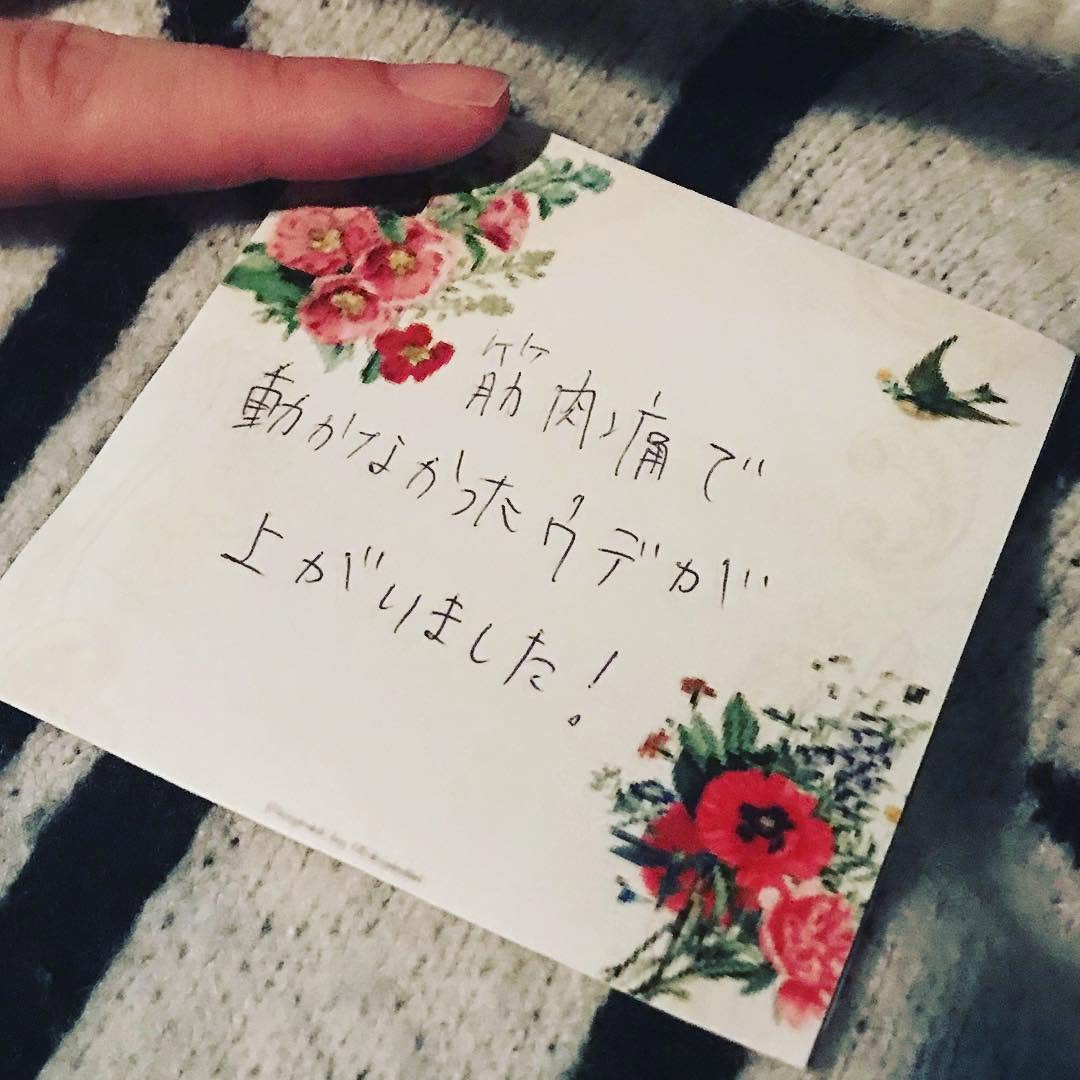 筋肉痛で
動かなかったウデが
上がりました！